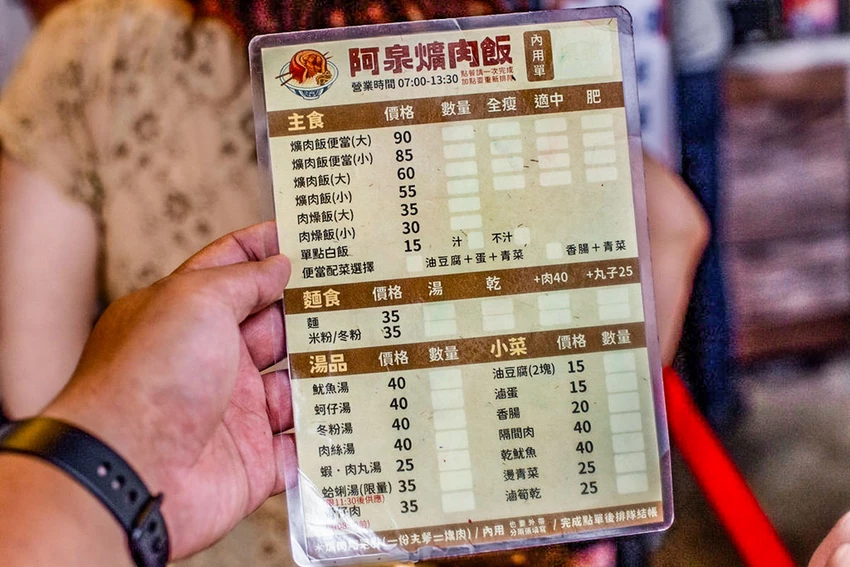 阿泉爌肉飯 內用單
營業時間 07:00-13:30 點餐請一次完成
加點要重新排隊
主食 價格 數量 全瘦 適中 肥
爌肉飯便當(大) 90
爌肉飯便當(小) 85
爌肉飯(大) 60
爌肉飯(小) 55
肉燥飯(大) 35
肉燥飯(小) 30
單點白飯 15 汁 不汁
便當配菜選擇 油豆腐+蛋+青菜 香腸+青菜
麵食 價格 湯 乾 +肉40 +丸子25
麵 35
米粉/冬粉 35
湯品 價格 數量 小菜 價格 數量
魷魚湯 40 油豆腐(2塊) 15
蚵仔湯 40 滷蛋 15
冬粉湯 40 香腸 20
肉絲湯 40 隔間肉 40
蝦‧肉丸湯 25 乾魷魚 40
蛤蜊湯(限量) 35 燙青菜 25
11:30後供應)
仔肉 35 滷筍乾 25
/ 內用 / 完成點單後排隊結帳